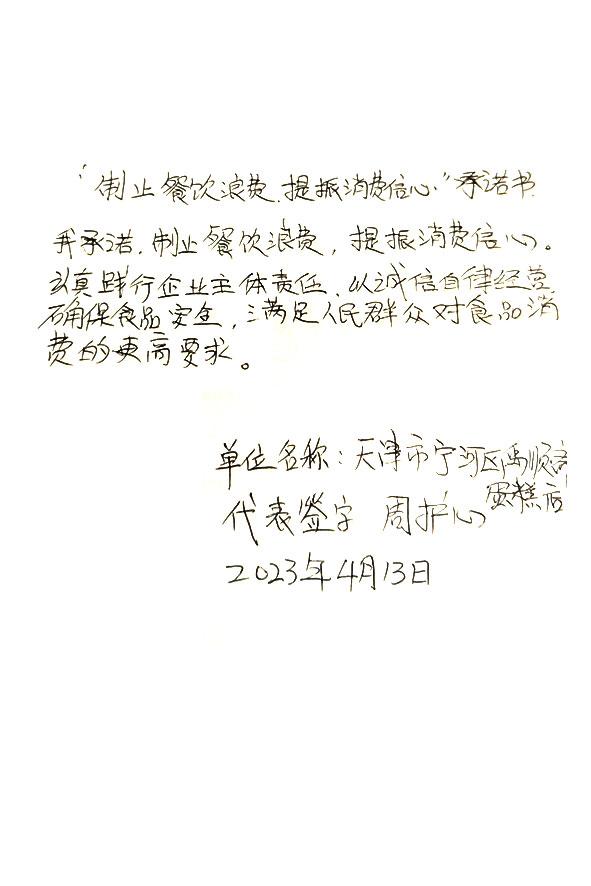 “制止餐饮浪费.提振消费信心”承诺书
我承诺.制止餐饮浪费，提振消费信心。
认真践行企业主体责任.以诚信自律经营.
确保食品安全，满足人民群众对食品消
费的更高要求。
单位名称：天津市宁河区禹顺斋
蛋糕店
代表签字 周护心
2023年4月13日